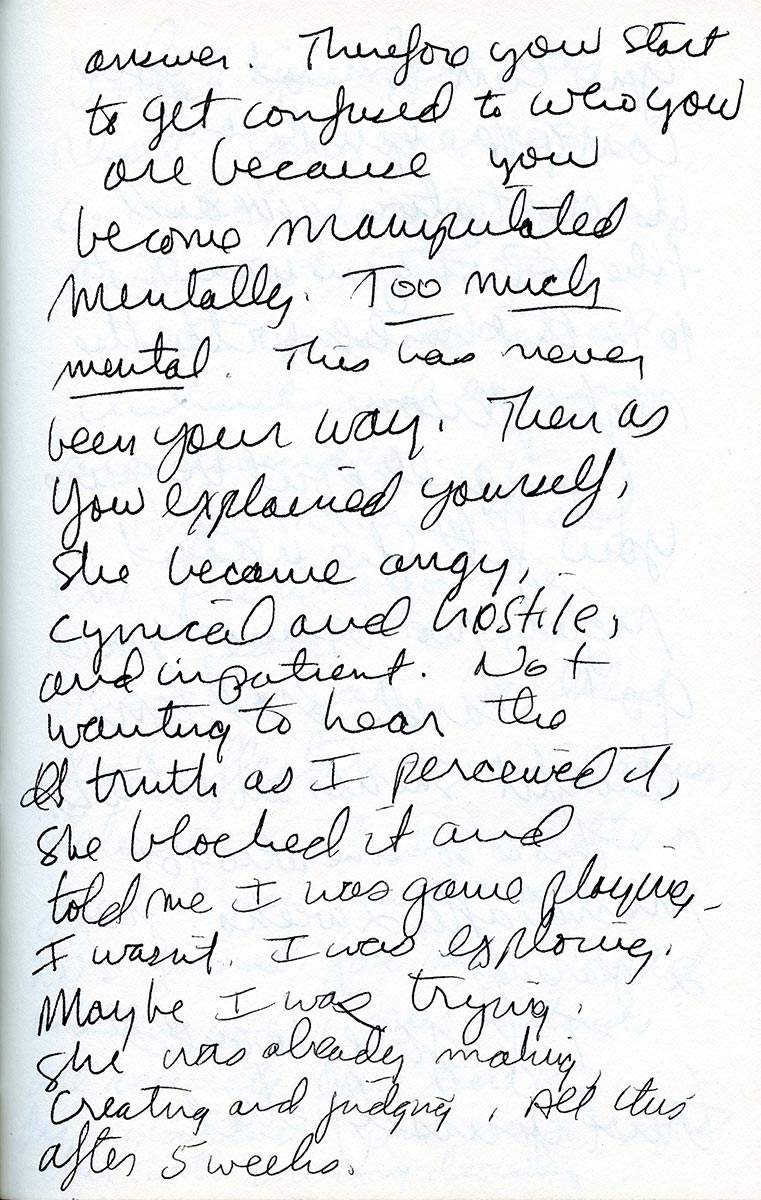 answer. Therefore you start
to get confused to who you
are because you
become manipulated
mentally. Too much
mental. This has never
been your way. Then as
you explained yourself,
she became angry,
cynical and hostile,
and inpatient. Not
wanting to hear the
truth as I perceived it,
she blocked it and
told me I was game playing -
I wasn't. I was exploring.
Maybe I was trying.
She was already making,
creating and judging. All this
after 5 weeks.